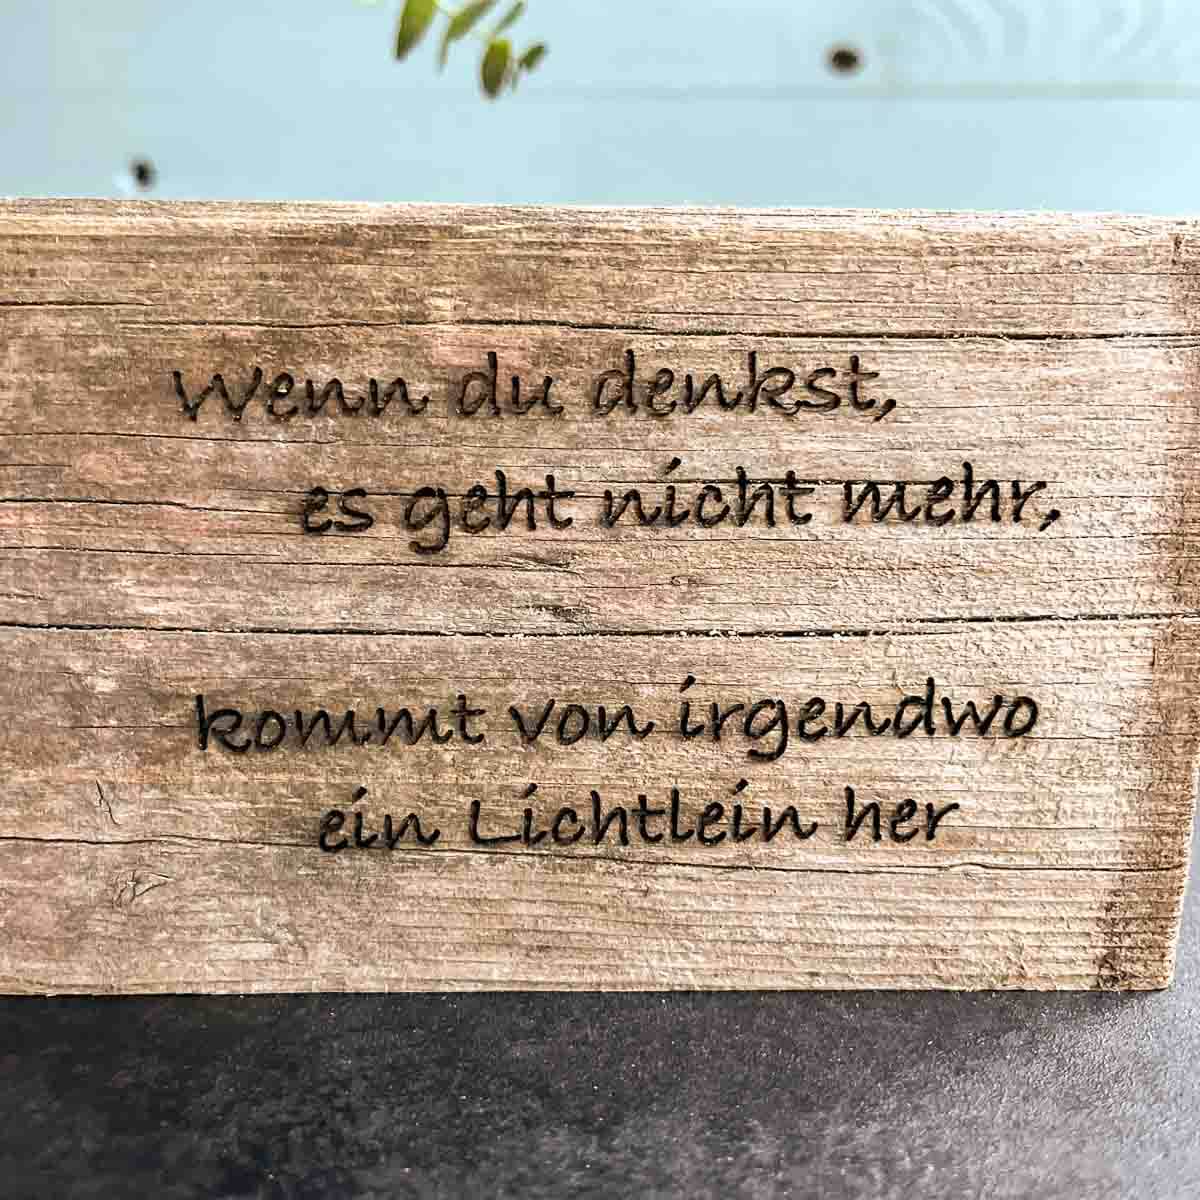 Wenn du denkst,
es geht nicht mehr,
kommt von irgendwo
ein Lichtlein her